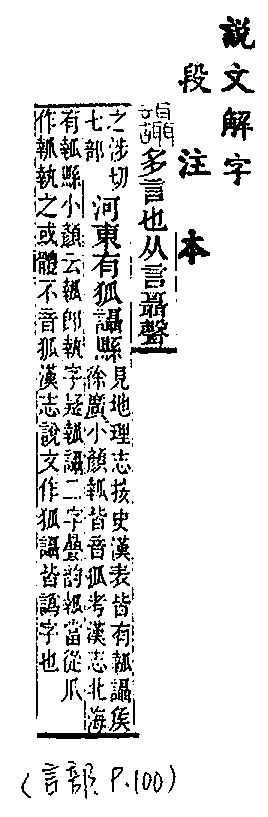 說文解字
段注本
讘多言也从言聶聲
之涉切
七部
河東有狐讘縣
見地理志按史漢表皆有瓡讘侯
徐廣小顏瓡皆音狐考漢志北海
有瓡縣小顏云瓡卽執字疑瓡讘二字疊韵瓡當從爪
作瓡執之或體不音狐漢志說文作狐讘皆譌字也
(言部 P.100)